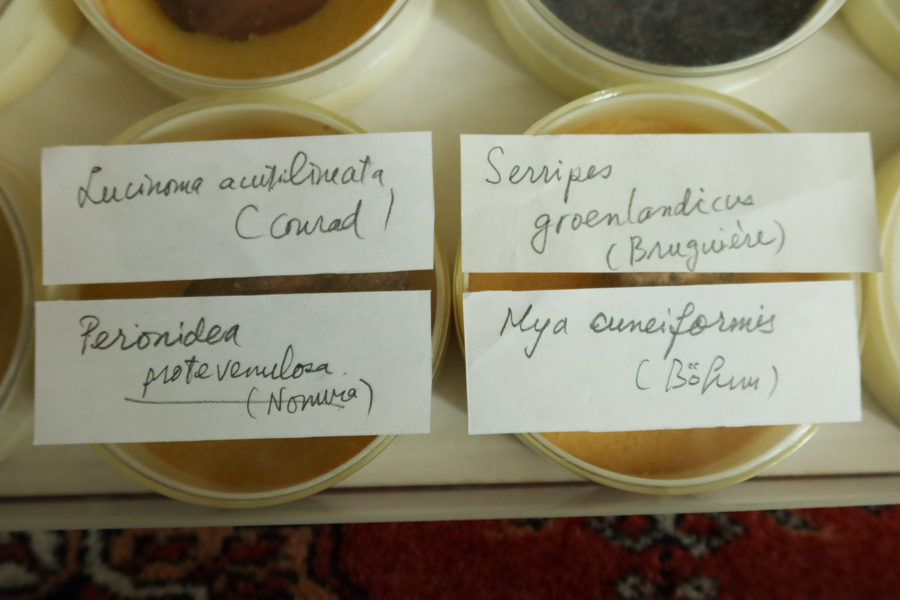 Lucinoma acutilineata
(Conrad)
Peronidea
protovenulosa
(Nomura)
Serripes
groenlandicus
(Bruguière)
Mya cuneiformis
(Böhm)